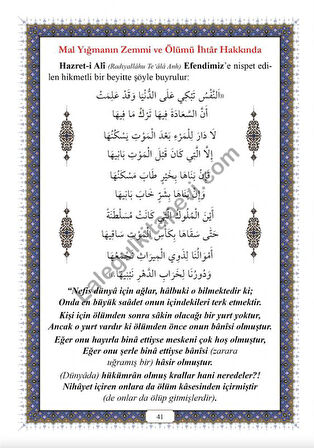 Mal Yığmanın Zemmi ve Ölümü İhtâr Hakkında
Hazret-i Ali (Radıyallâhu Te‘âlâ Anh) Efendimiz’e nispet edi-
len hikmetli bir beyitte şöyle buyrulur:
اَلنَّفْسُ تَبْكِي عَلَى الدُّنْيَا وَقَدْ عَلِمَتْ
أَنَّ السَّعَادَةَ فِيهَا تَرْكُ مَا فِيهَا
لَا دَارَ لِلْمَرْءِ بَعْدَ الْمَوْتِ يَسْكُنُهَا
إِلَّا الَّتِي كَانَ قَبْلَ الْمَوْتِ بَانِيهَا
فَإِنْ بَنَاهَا بِخَيْرٍ طَابَ مَسْكَنُهَا
وَإِنْ بَنَاهَا بِشَرٍّ خَابَ بَانِيهَا
أَيْنَ الْمُلُوكُ الَّتِي كَانَتْ مُسَلْطَنَةً
حَتَّى سَقَاهَا بِكَأْسِ الْمَوْتِ سَاقِيهَا
أَمْوَالُنَا لِذَوِي الْمِيرَاثِ نَجْمَعُهَا
وَدُورُنَا لِخَرَابِ الدَّهْرِ نَبْنِيهَا
“Nefis dünyâ için ağlar, hâlbuki o bilmektedir ki;
Onda en büyük saâdet onun içindekileri terk etmektir.
Kişi için ölümden sonra sâkin olacağı bir yurt yoktur,
Ancak o yurt vardır ki ölümden önce onun bânîsi olmuştur.
Eğer onu hayırla binâ ettiyse meskeni çok hoş olmuştur,
Eğer onu şerle binâ ettiyse bânîsi (zarara
uğramış bir) hâsir olmuştur.
(Dünyâda) hükümrân olmuş krallar hani neredeler?!
Nihâyet içiren onlara da ölüm kâsesinden içirmiştir
(de onlar da ölüp gitmişlerdir).
41
kalegulkitapevi.com